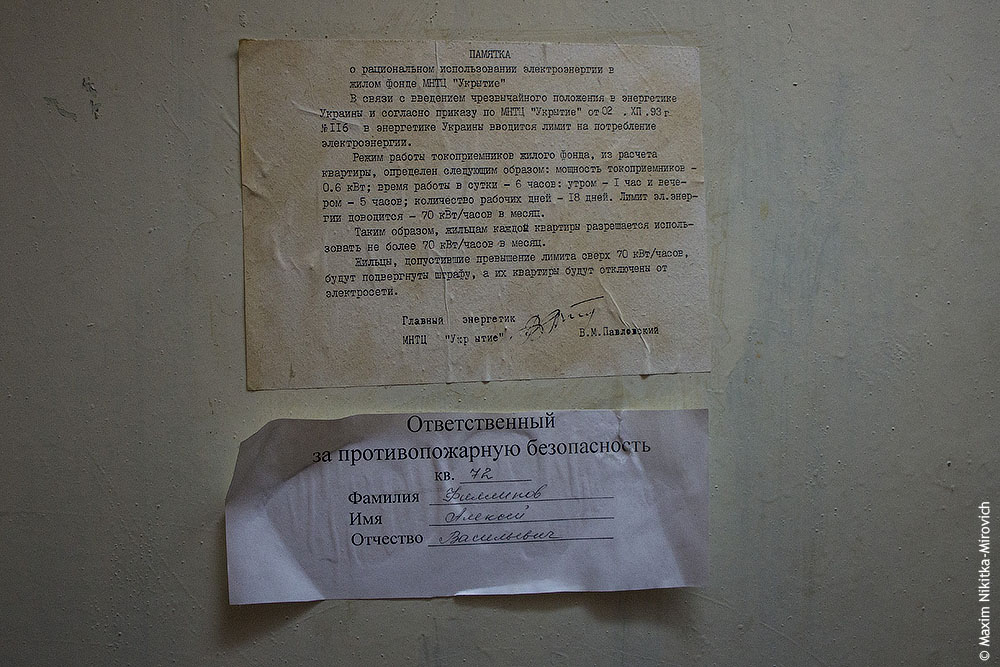 ПАМЯТКА
о рациональном использовании электроэнергии в
жилом фонде МНТЦ "Укрытие"
В связи с введением чрезвычайного положения в энергетике
Украины и согласно приказу по МНТЦ "Укрытие" от 02 . ХП .93 г.
№ II6 в энергетике Украины вводится лимит на потребление
электроэнергии.
Режим работы токоприемников жилого фонда, из расчета
квартиры, определен следующим образом: мощность токоприемников -
0.6 кВт; время работы в сутки - 6 часов: утром - I час и вече-
ром - 5 часов; количество рабочих дней - I8 дней. Лимит эл.энер-
гии доводится - 70 кВт/часов в месяц.
Таким образом, жильцам каждой квартиры разрешается исполь-
зовать не более 70 кВт/часов в месяц.
Жильцы, допустившие превышение лимита сверх 70 кВт/часов,
будут подвергнуты штрафу, а их квартиры будут отключены от
электросети.
Главный энергетик
МНТЦ "Укрытие". В.М.Павловский
Ответственный
за противопожарную безопасность
кв. 72
Фамилия Филлипов
Имя Алексей
Отчество Васильевич
© Maxim Nikitka-Mirovich